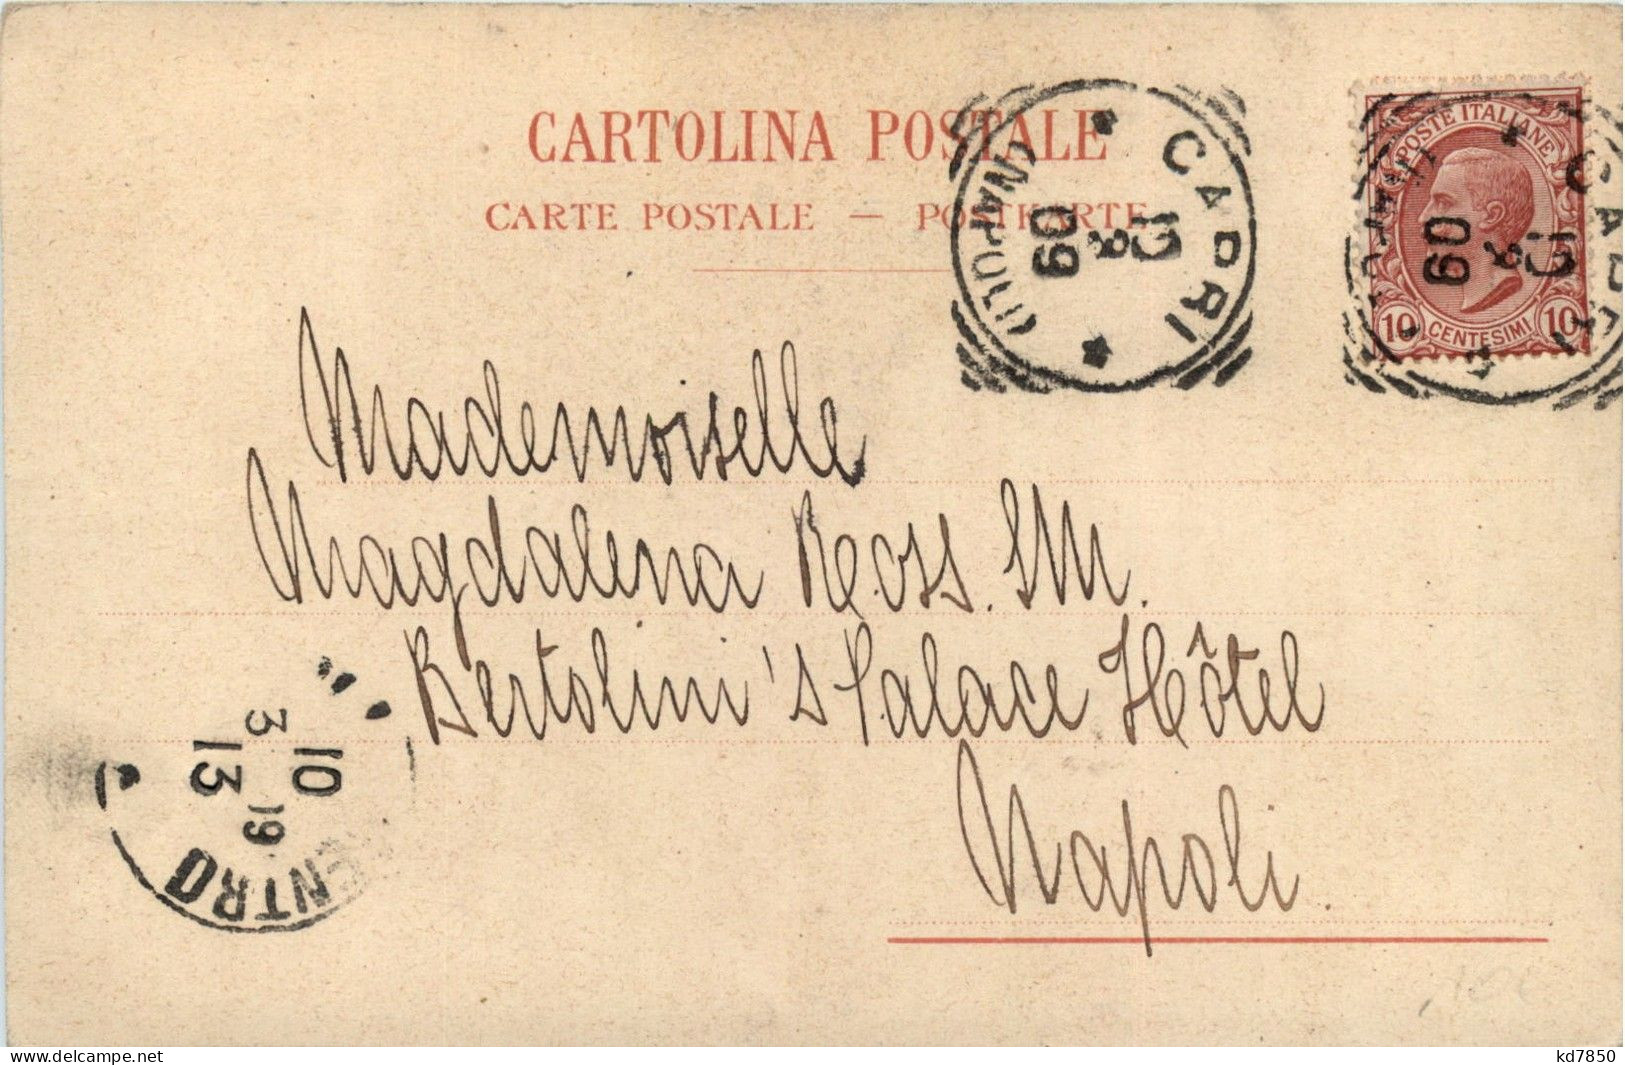 CARTOLINA POSTALE
CARTE POSTALE — POSTKARTE
CAPRI
(NAPOLI)
09
POSTE ITALIANE
10 CENTESIMI 10
CAPRI
09
Mademoiselle
Magdalena Ross. Mr.
Bertolini's Palace Hôtel
Napoli.
10
3 09
13
ENTRO
www.delcampe.net
kd7850